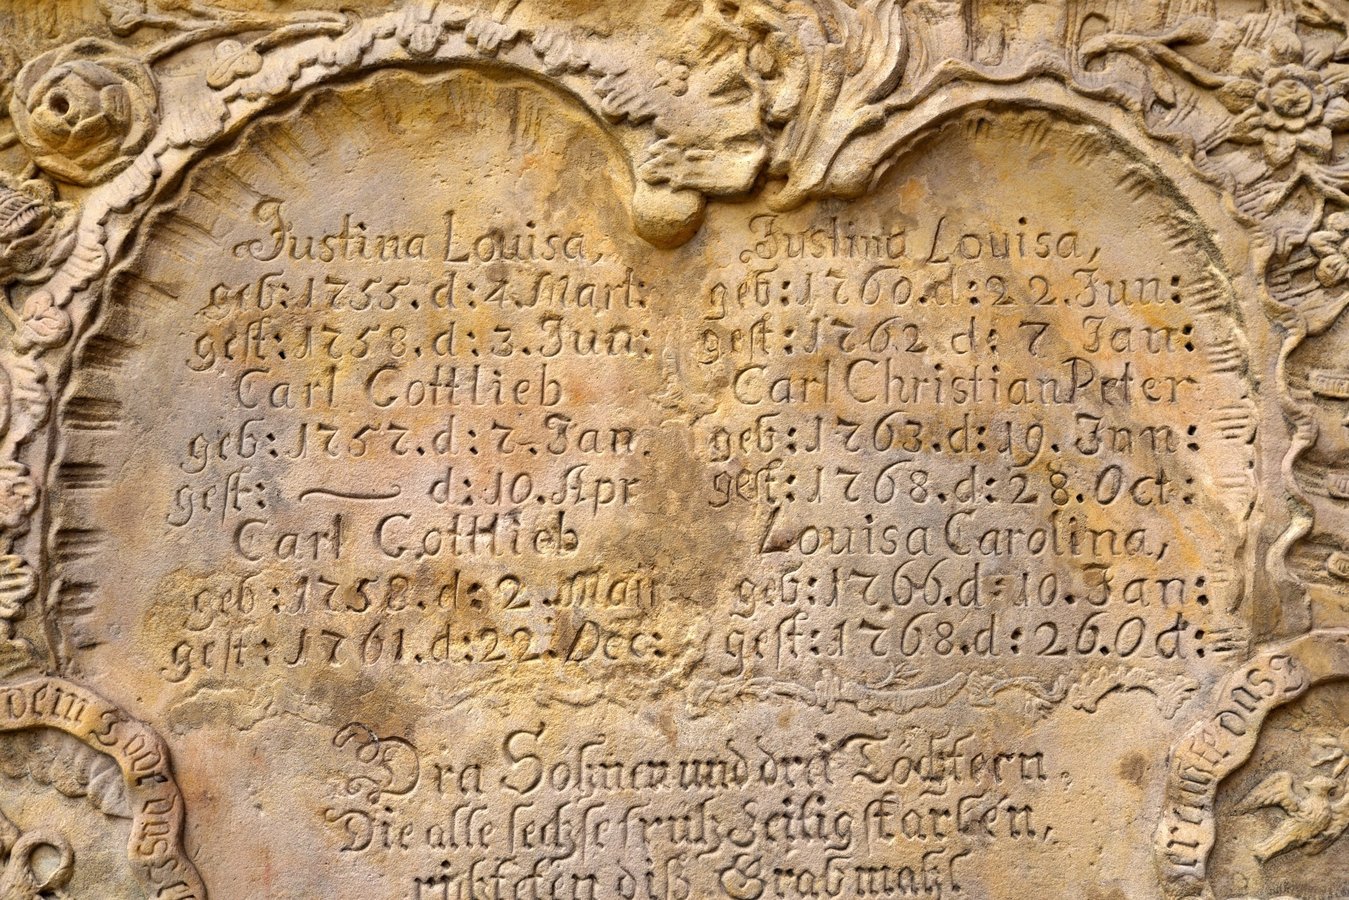 Justina Louisa,
geb: 1755. d: 4. Mart:
gest: 1758. d: 3. Jun:
Carl Gottlieb
geb: 1757. d: 7. Jan:
gest: — d: 10. Apr
Carl Gottlieb
geb: 1758. d: 2. Maij
gest: 1761. d: 22. Dec:
Justina Louisa,
geb: 1760. d: 22. Jun:
gest: 1762. d: 7 Jan:
Carl Christian Peter
geb: 1763. d: 19. Jun:
gest: 1768. d: 28. Oct:
Louisa Carolina,
geb: 1766. d: 10. Jan:
gest: 1768. d: 26. Oct:
Dra Söhnen und drei Töchtern,
Die alle sechse früh Zeitig starben,
richteten diß Grabmahl
dein Tode
uns